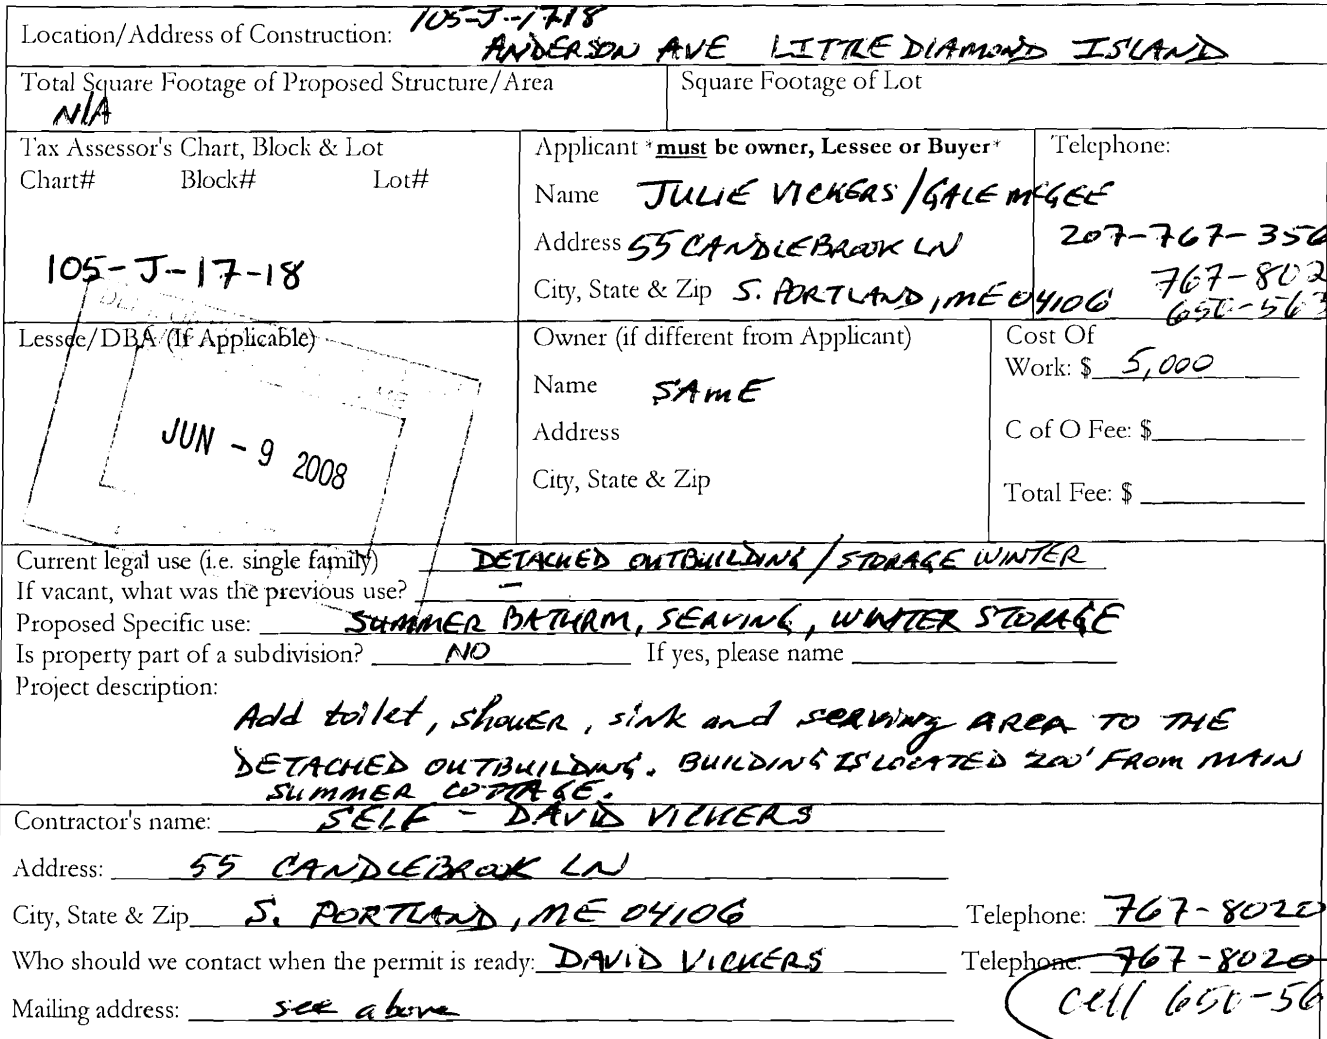 Location/Address of Construction: 105-J-1718
ANDERSON AVE LITTLE DIAMOND ISLAND
Total Square Footage of Proposed Structure/Area Square Footage of Lot
N/A
Tax Assessor's Chart, Block & Lot
Chart# Block# Lot#
105-J-17-18
Applicant *must be owner, Lessee or Buyer*
Name JULIE VICKERS/GALE MCGEE
Address 55 CANDLEBROOK LN
City, State & Zip S. PORTLAND, ME 04106
Telephone:
207-767-356
767-802
650-563
Lessee/DBA (If Applicable)
JUN - 9 2008
Owner (if different from Applicant)
Name SAME
Address
City, State & Zip
Cost Of
Work: $ 5,000
C of O Fee: $
Total Fee: $
Current legal use (i.e. single family) DETACHED OUTBUILDING/STORAGE WINTER
If vacant, what was the previous use? –
Proposed Specific use: SUMMER BATHRM, SERVING, WINTER STORAGE
Is property part of a subdivision? NO If yes, please name
Project description:
Add toilet, shower, sink and serving AREA TO THE
DETACHED OUTBUILDING. BUILDING IS LOCATED 200' FROM MAIN
SUMMER COTTAGE.
Contractor's name: SELF - DAVID VICKERS
Address: 55 CANDLEBROOK LN
City, State & Zip S. PORTLAND, ME 04106 Telephone: 767-8020
Who should we contact when the permit is ready: DAVID VICKERS Telephone: 767-8020
Mailing address: see above cell 650-56